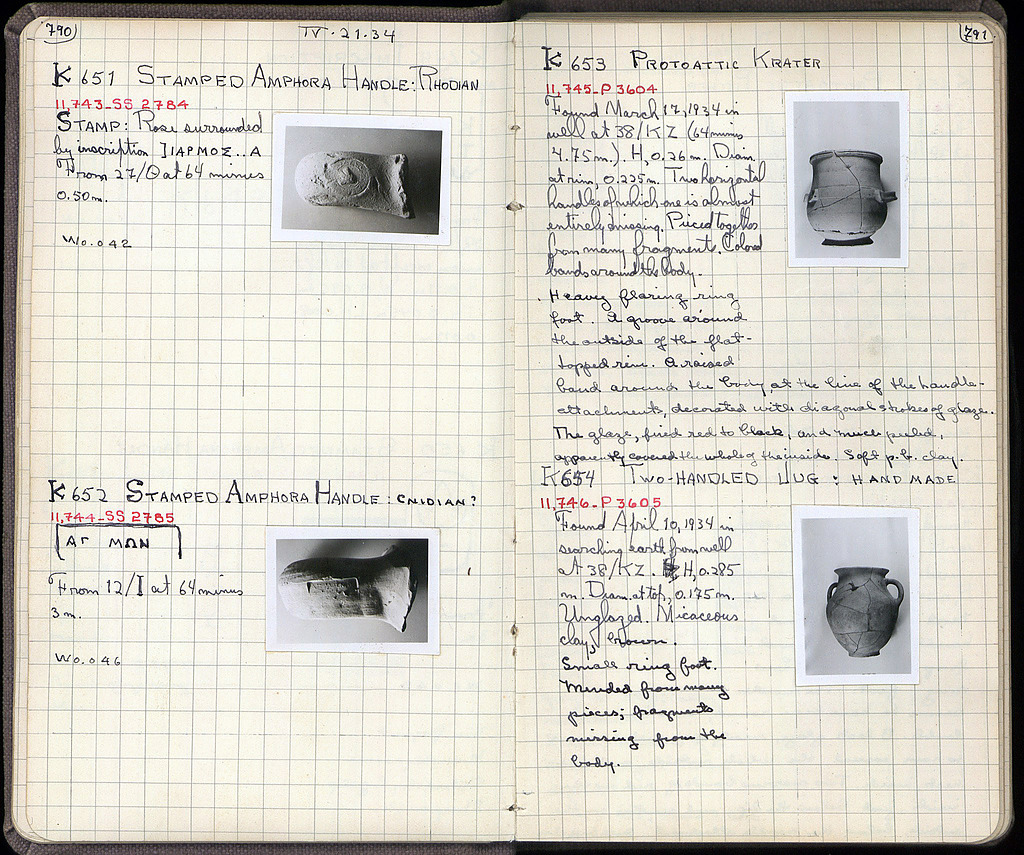 790
IV·21·34
K 651 STAMPED AMPHORA HANDLE: RHODIAN
11,743-SS 2784
STAMP: Rose surrounded
by inscription ]ΙΑΡΜΟΣ..Α
From 27/Θ at 64 minus
0.50m.
W0.042
K 652 STAMPED AMPHORA HANDLE: CNIDIAN?
11,744-SS 2785
ΑΓ ΜΩΝ
From 12/I at 64 minus
3m.
W0.046
791
K 653 PROTOATTIC KRATER
11,745-P 3604
Found March 17, 1934 in
well at 38/ΚΖ (64 minus
4.75m.). H, 0.26m. Diam.
at rim, 0.225m. Two horizontal
handles of which one is almost
entirely missing. Pieced together
from many fragments. Colored
bands around the body.
Heavy flaring ring
foot. A groove around
the outside of the flat-
topped rim. A raised
band around the body, at the line of the handle-
attachments, decorated with diagonal strokes of glaze.
The glaze, fired red to black, and much peeled,
apparently covered the whole of the inside. Soft p.b. clay.
K 654 TWO-HANDLED JUG: HANDMADE
11,746-P 3605
Found April 10, 1934 in
searching earth from well
at 38/ΚΖ. H, 0.285
m. Diam. at top, 0.175m.
Unglazed. Micaceous
clay, brown.
Small ring foot.
Mended from many
pieces; fragments
missing from the
body.